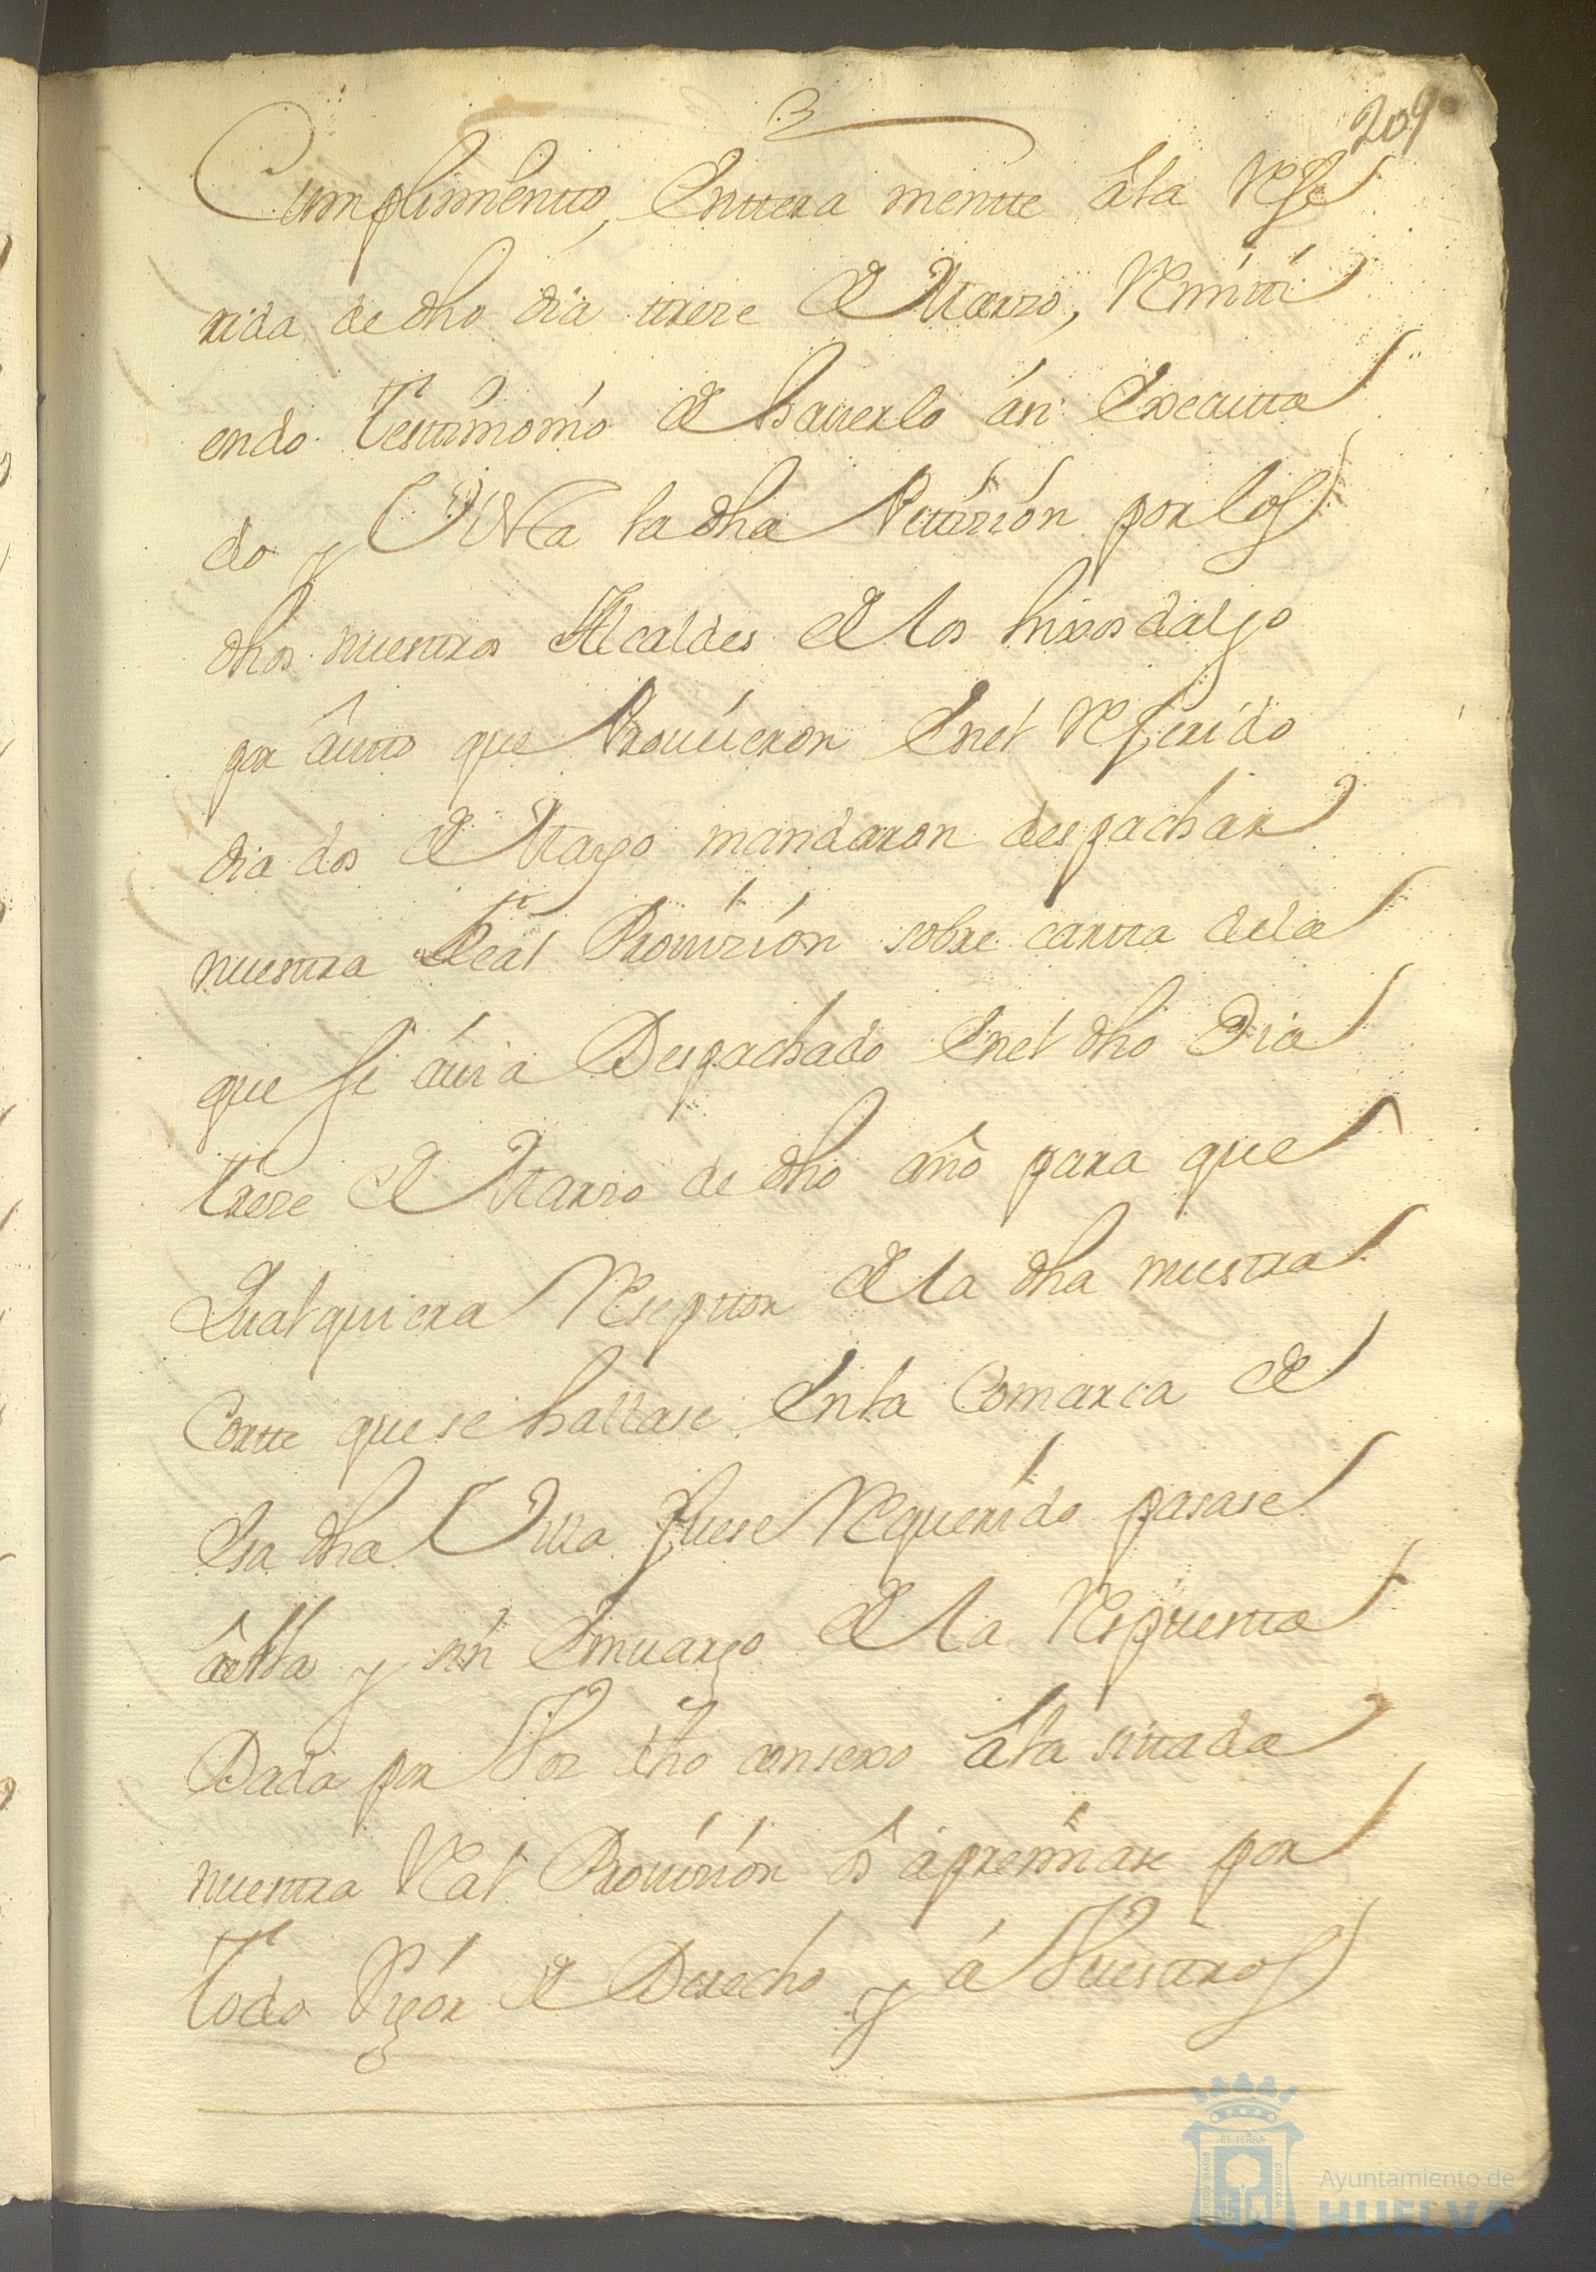 209
Cumplimientto, Entteramentte â la Refe
rida de dho dia treze de Marzo, Remitti
endo Testtimonio de hauerlo ási Executta
do y Vista la dha Petizión por los
dhos nuestros Alcaldes de los hixosdalgo
por âutto que Prouuieron Enel Referido
dia dos de Mayo mandaron despachar
nuestra Real Prouizión sobre cartta dela
que se áuia Despachado Enel dho Dia
treze de Marzo de dho año para que
Qualquiera Reseptor de la dha nuestra
Cortte que se hallase Enla Comarca de
Esa dha Villa fuese Requerido pasase
âella y sin Emuargo de la Respuesta
Dada por Vos dho consexo âla sittada
nuestra Real Prouisión ôs âpremiase por
todo Rigór de Derecho y á Vuestros
ET TERRAE
Ayuntamiento de
HUELVA